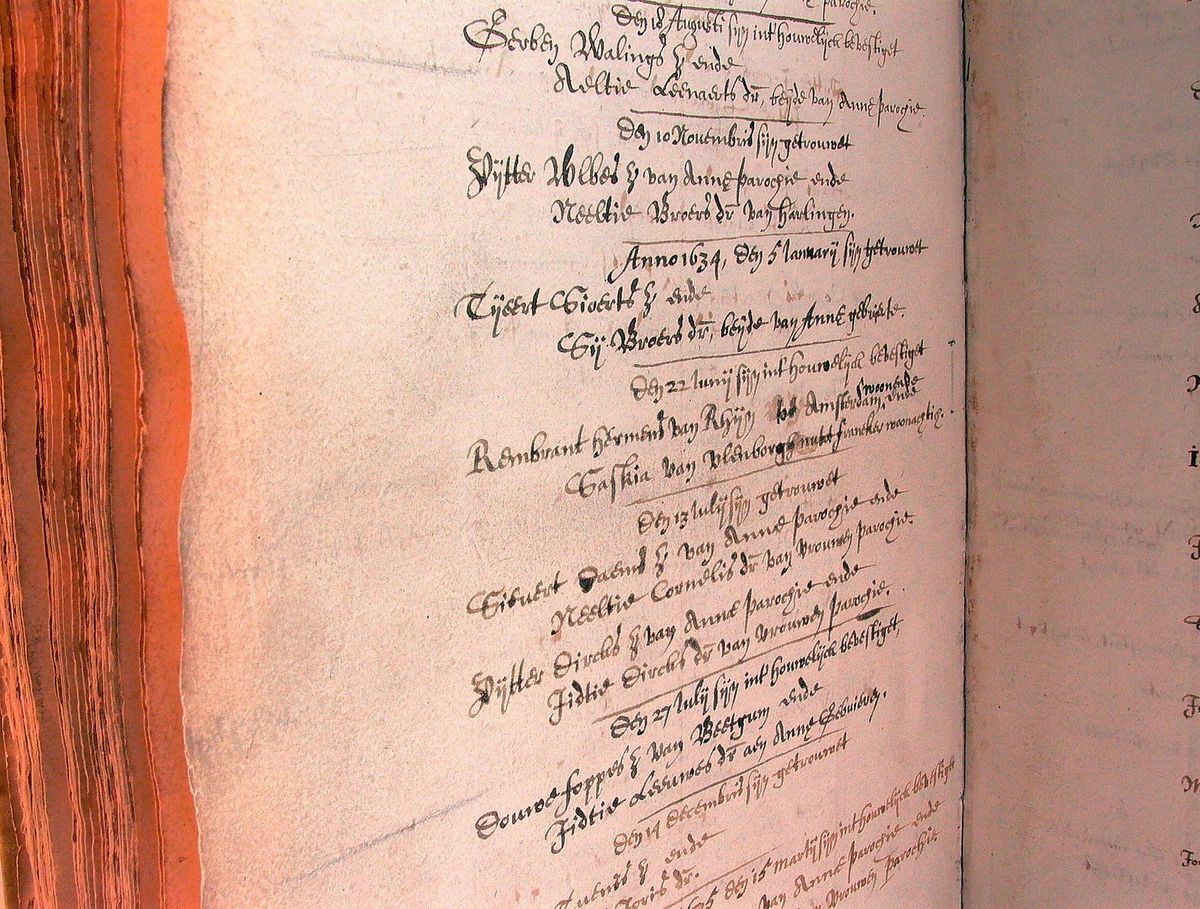 parochie.
Den 18 Augusti sijn int houwelijck bevestiget
Gerben Walings z ende
Aeltie Leenaerts dr, beyde van Anne parochie
Den 10 Novembris sijn getrouwet
Wytter Wlbes z van Anne parochie ende
Neeltie Broers dr van Harlingen.
Anno 1634, den 5 January sijn getrouwet
Tyeert Sioerts z ende
Sij Broers dr, beyde van Anne gebuerte.
Den 22 Iunij sijn int houwelijck bevestiget
Rembrant Hermens van Rhijn tot Amsterdam woonende ende
Saskia van Vlenborgh nu tot Franeker woonachtich.
Den 13 Iulij sijn getrouwet
Sievert Daems z van Anne parochie ende
Neeltie Cornelis dr van Vrouwen parochie.
Wytter Dircks z van Anne parochie ende
Jidtie Dircks dr van Vrouwen parochie.
Den 27 Iulij sijn int houwelijck bevestiget,
Douwe Foppes z van Beetgum ende
Jidtie Leeuwes dr aen Anne Gebuieren.
Den 14 Decembris sijn getrouwet
z ende
dr.
den 15 Martij sijn int houwelijck bevestiget
van Anne parochie ende
van Vrouwen parochie